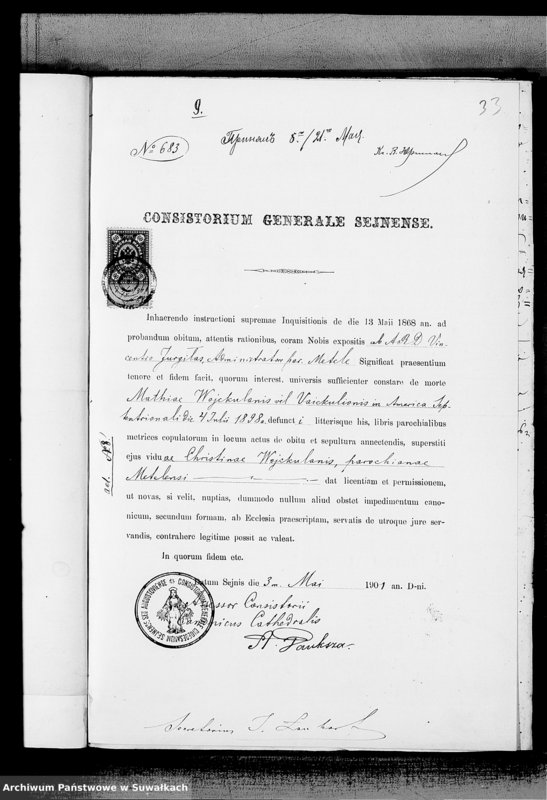 9.
33
№ 683
8/21 Мая
CONSISTORIUM GENERALE SEJNENSE.
Inhaerendo instructioni supremae Inquisitionis de die 13 Maii 1868 an. ad
probandum obitum, attentis rationibus, coram Nobis expositis ab A.R.D. Vin-
centio Jurgilas, Administratore par. Metele Significat praesentium
tenore et fidem facit, quorum interest, universis sufficienter constare de morte
Mathiae Wojckulanis vil Vaickulionis in America Sep-
tentrionali die 4 Julii 1898 a. defuncti litterisque his, libris parochialibus
metrices copulatorum in locum actus de obitu et sepultura annectendis, superstiti
ejus viduae Christinae Wojckulanis, parochianae
Metelensi dat licentiam et permissionem,
ut novas, si velit, nuptias, dummodo nullum aliud obstet impedimentum cano-
nicum, secundum formam, ab Ecclesia praescriptam, servatis de utroque jure ser-
vandis, contrahere legitime possit ac valeat.
In quorum fidem etc.
act. №8
Datum Sejnis die 3 m. Mai 1901 an. D-ni.
Assessor Consistorii
Canonicus Cathedralis
A. Pauksza.
Secretarius J.
Archiwum Państwowe w Suwałkach